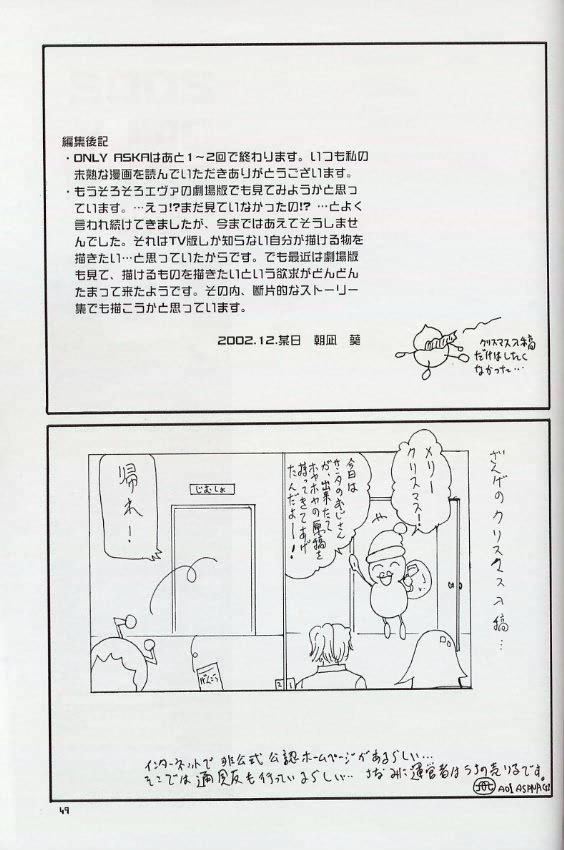 編集後記
・ONLY ASKAはあと1～2回で終わります。いつも私の
未熟な漫画を読んでいただきありがとうございます。
・もうそろそろエヴァの劇場版でも見てみようかと思っ
ています。…えっ!?まだ見ていなかったの!? …とよく
言われ続けてきましたが、今まではあえてそうしませ
んでした。それはTV版しか知らない自分が描ける物を
描きたい…と思っていたからです。でも最近は劇場版
も見て、描けるものを描きたいという欲求がどんどん
たまって来たようです。その内、断片的なストーリー
集でも描こうかと思っています。
2002.12.某日 朝凪 葵
クリスマス入稿
だけはしたく
なかった…
ざんげのクリスマス入稿…
メリー
クリスマス!
今日は
サンタのおじさん
が、出来たて
ホヤホヤの原稿を
持ってきてあげ
たんだよー!!
じむしょ
帰れ!
げんこう
2
1
インターネットで非公式公認ホームページがあるらしい…
そこでは通販も行っているらしい… ちなみに運営者はうちの売り子です。
AOI ASANAGI
49